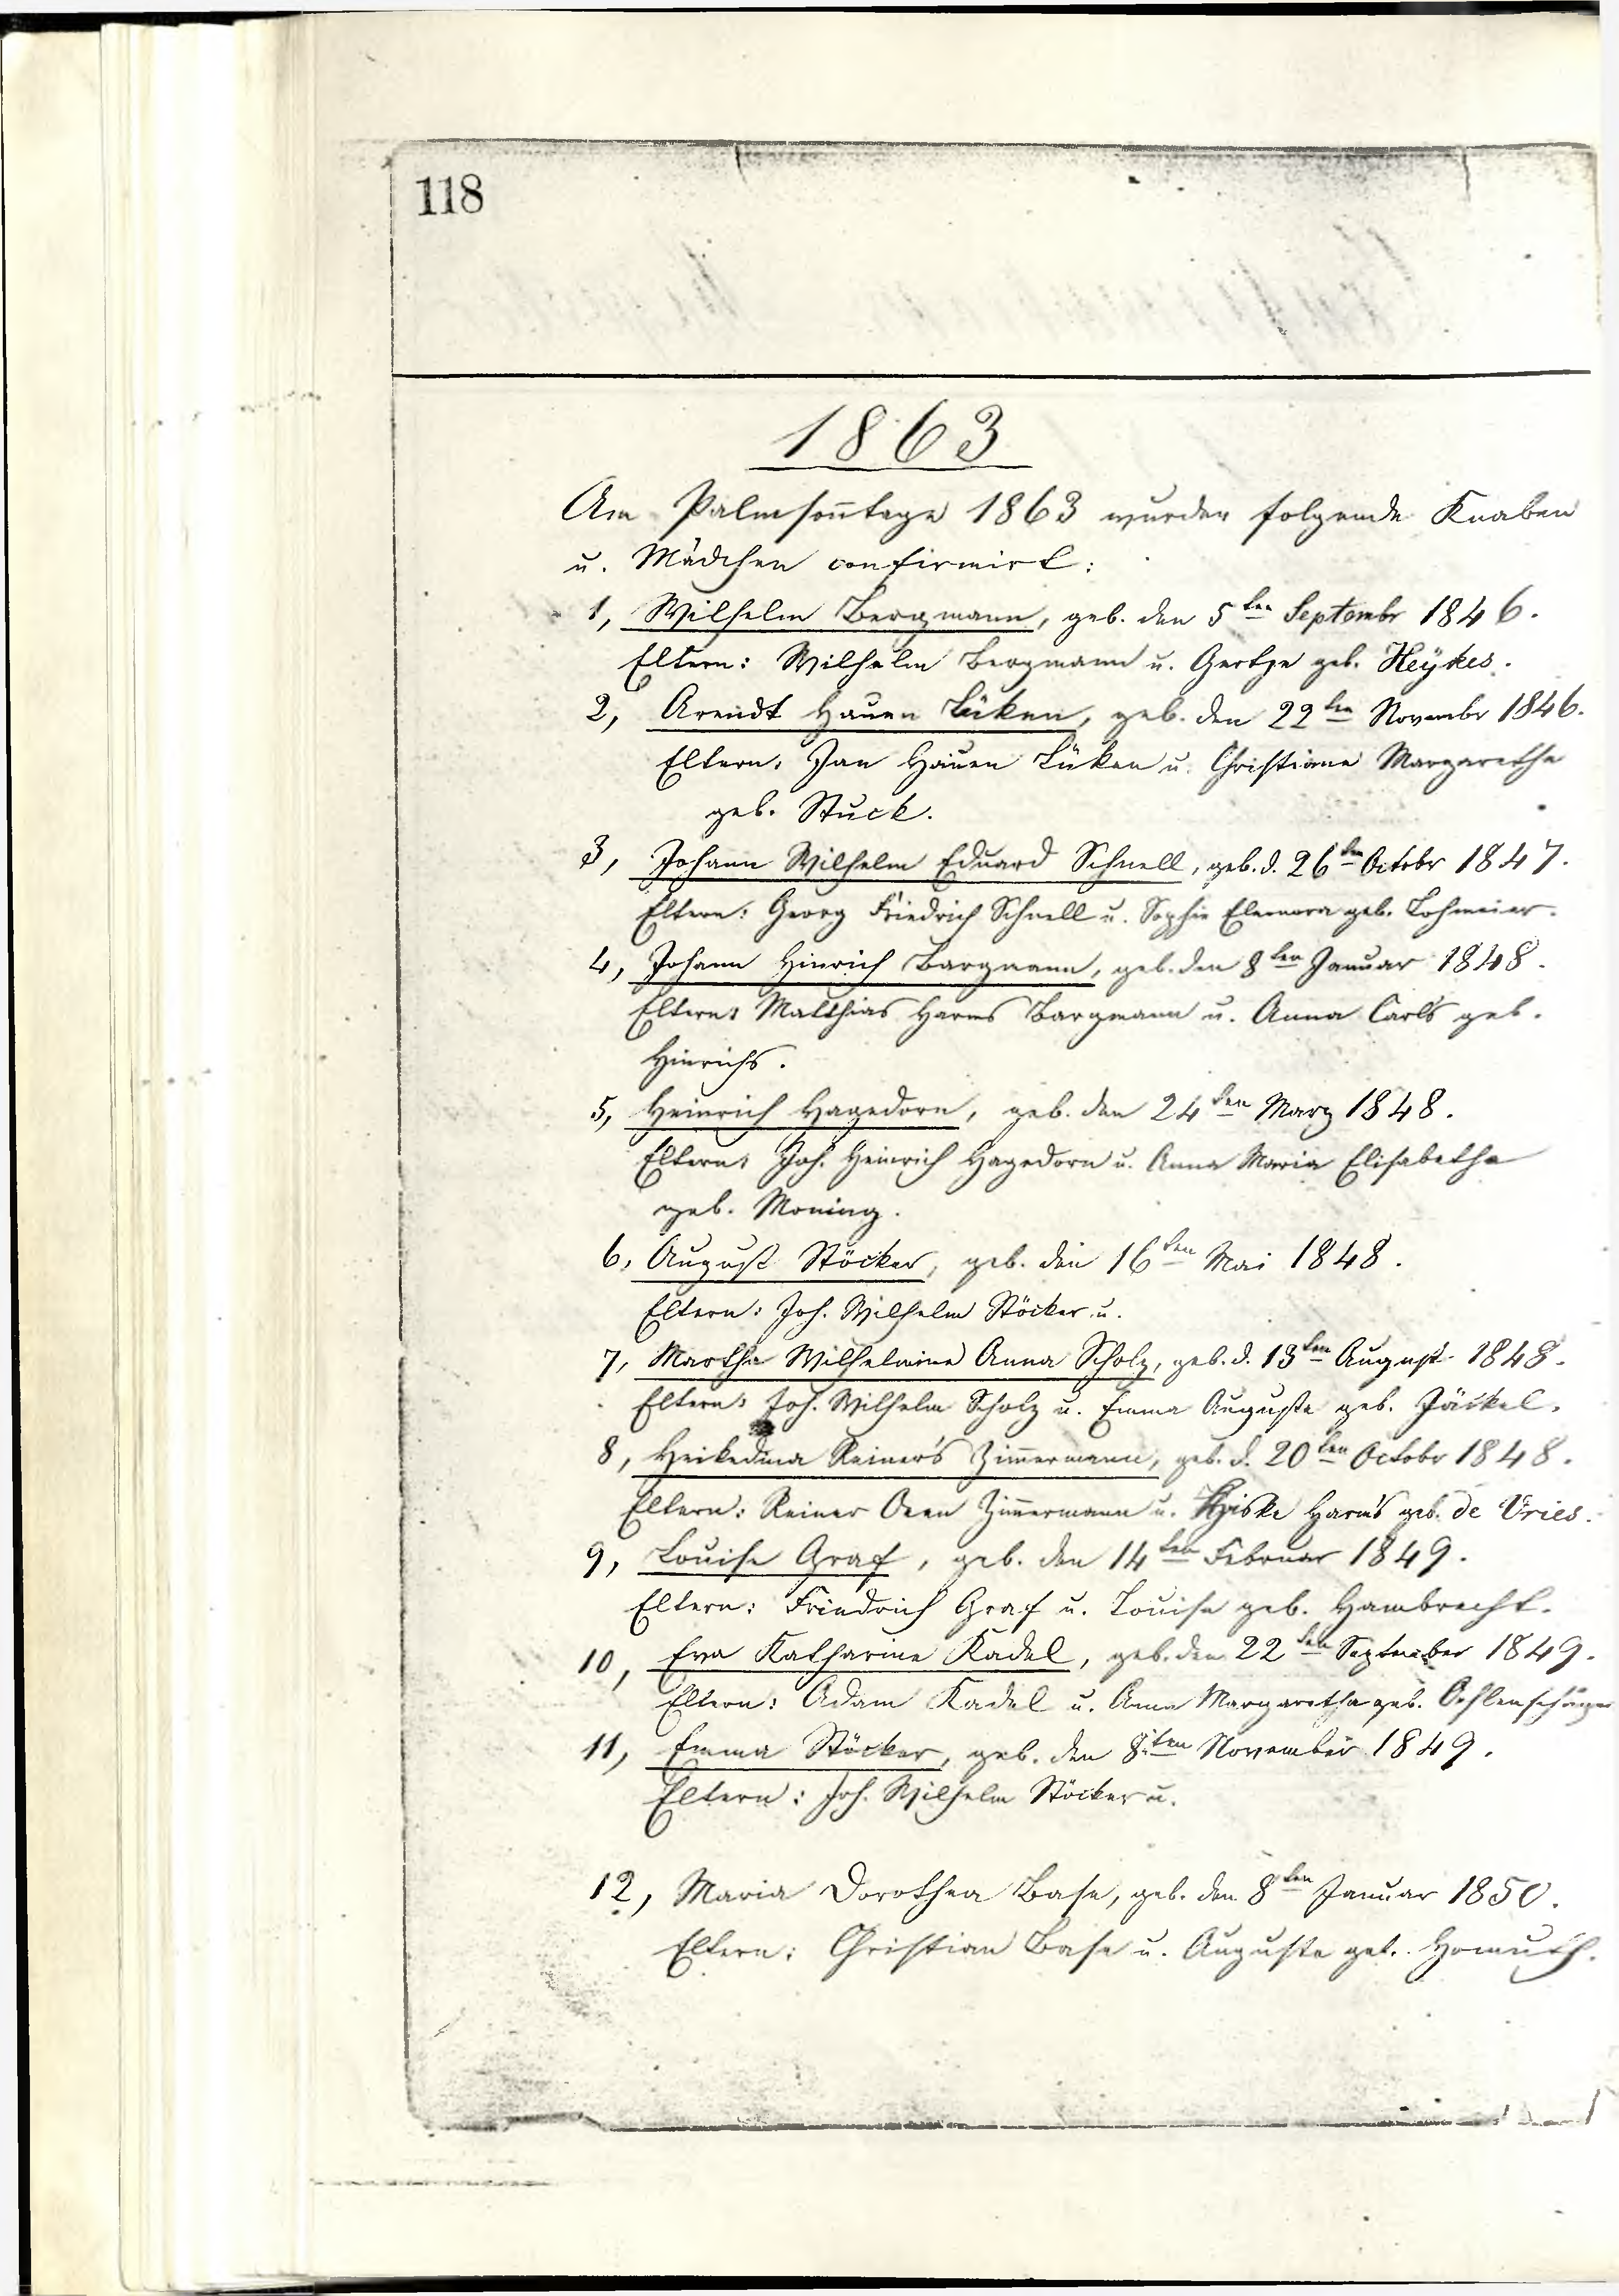 118
1863
Am Palmsontage 1863 wurden folgende Knaben
u. Mädchen confirmirt:
1, Wilhelm Bergmann, geb. den 5ten Septembr 1846.
Eltern: Wilhelm Bergmann u. Gertje geb. Heÿkes.
2, Arendt Hauen Lüken, geb. den 22ten Novembr 1846.
Eltern: Jan Hauen Lüken u. Christiane Margarethe
geb. Stuck.
3, Johann Wilhelm Eduard Schnell, geb. d. 26ten Octobr 1847.
Eltern: Georg Friedrich Schnell u. Sophie Eleonora geb. Lohmeier.
4, Johann Hinrich Bargmann, geb. den 8ten Januar 1848.
Eltern: Matthias Harms Bargmann u. Anna Carls geb.
Hinrichs.
5, Heinrich Hagedorn, geb. den 24ten Marz 1848.
Eltern: Joh. Heinrich Hagedorn u. Anna Maria Elisabetha
geb. Moning.
6, August Stöcker, geb. den 16ten Mai 1848.
Eltern: Joh. Wilhelm Stöcker u.
7, Martha Wilhelmine Anna Scholz, geb. d. 13ten August 1848.
Eltern: Joh. Wilhelm Scholz u. Emma Auguste geb. Jäckel.
8, Heikedina Reiner's Zimermann, geb. d. 20ten Octobr 1848.
Eltern: Reiner Onen Zimermann u. Harm's geb. de Vries.
9, Louise Graf, geb. den 14ten Februar 1849.
Eltern: Friedrich Graf u. Louise geb. Hambrecht.
10, Eva Katharine Kadel, geb. den 22ten September 1849.
Eltern: Adam Kadel u. Anna Margaretha geb. Oehlenschäger
11, Emma Stöcker, geb. den 8ten November 1849.
Eltern: Joh. Wilhelm Stöcker u.
12, Maria Dorothea Base, geb. den 8ten Januar 1850.
Eltern: Christian Base u. Auguste geb. Homuth.